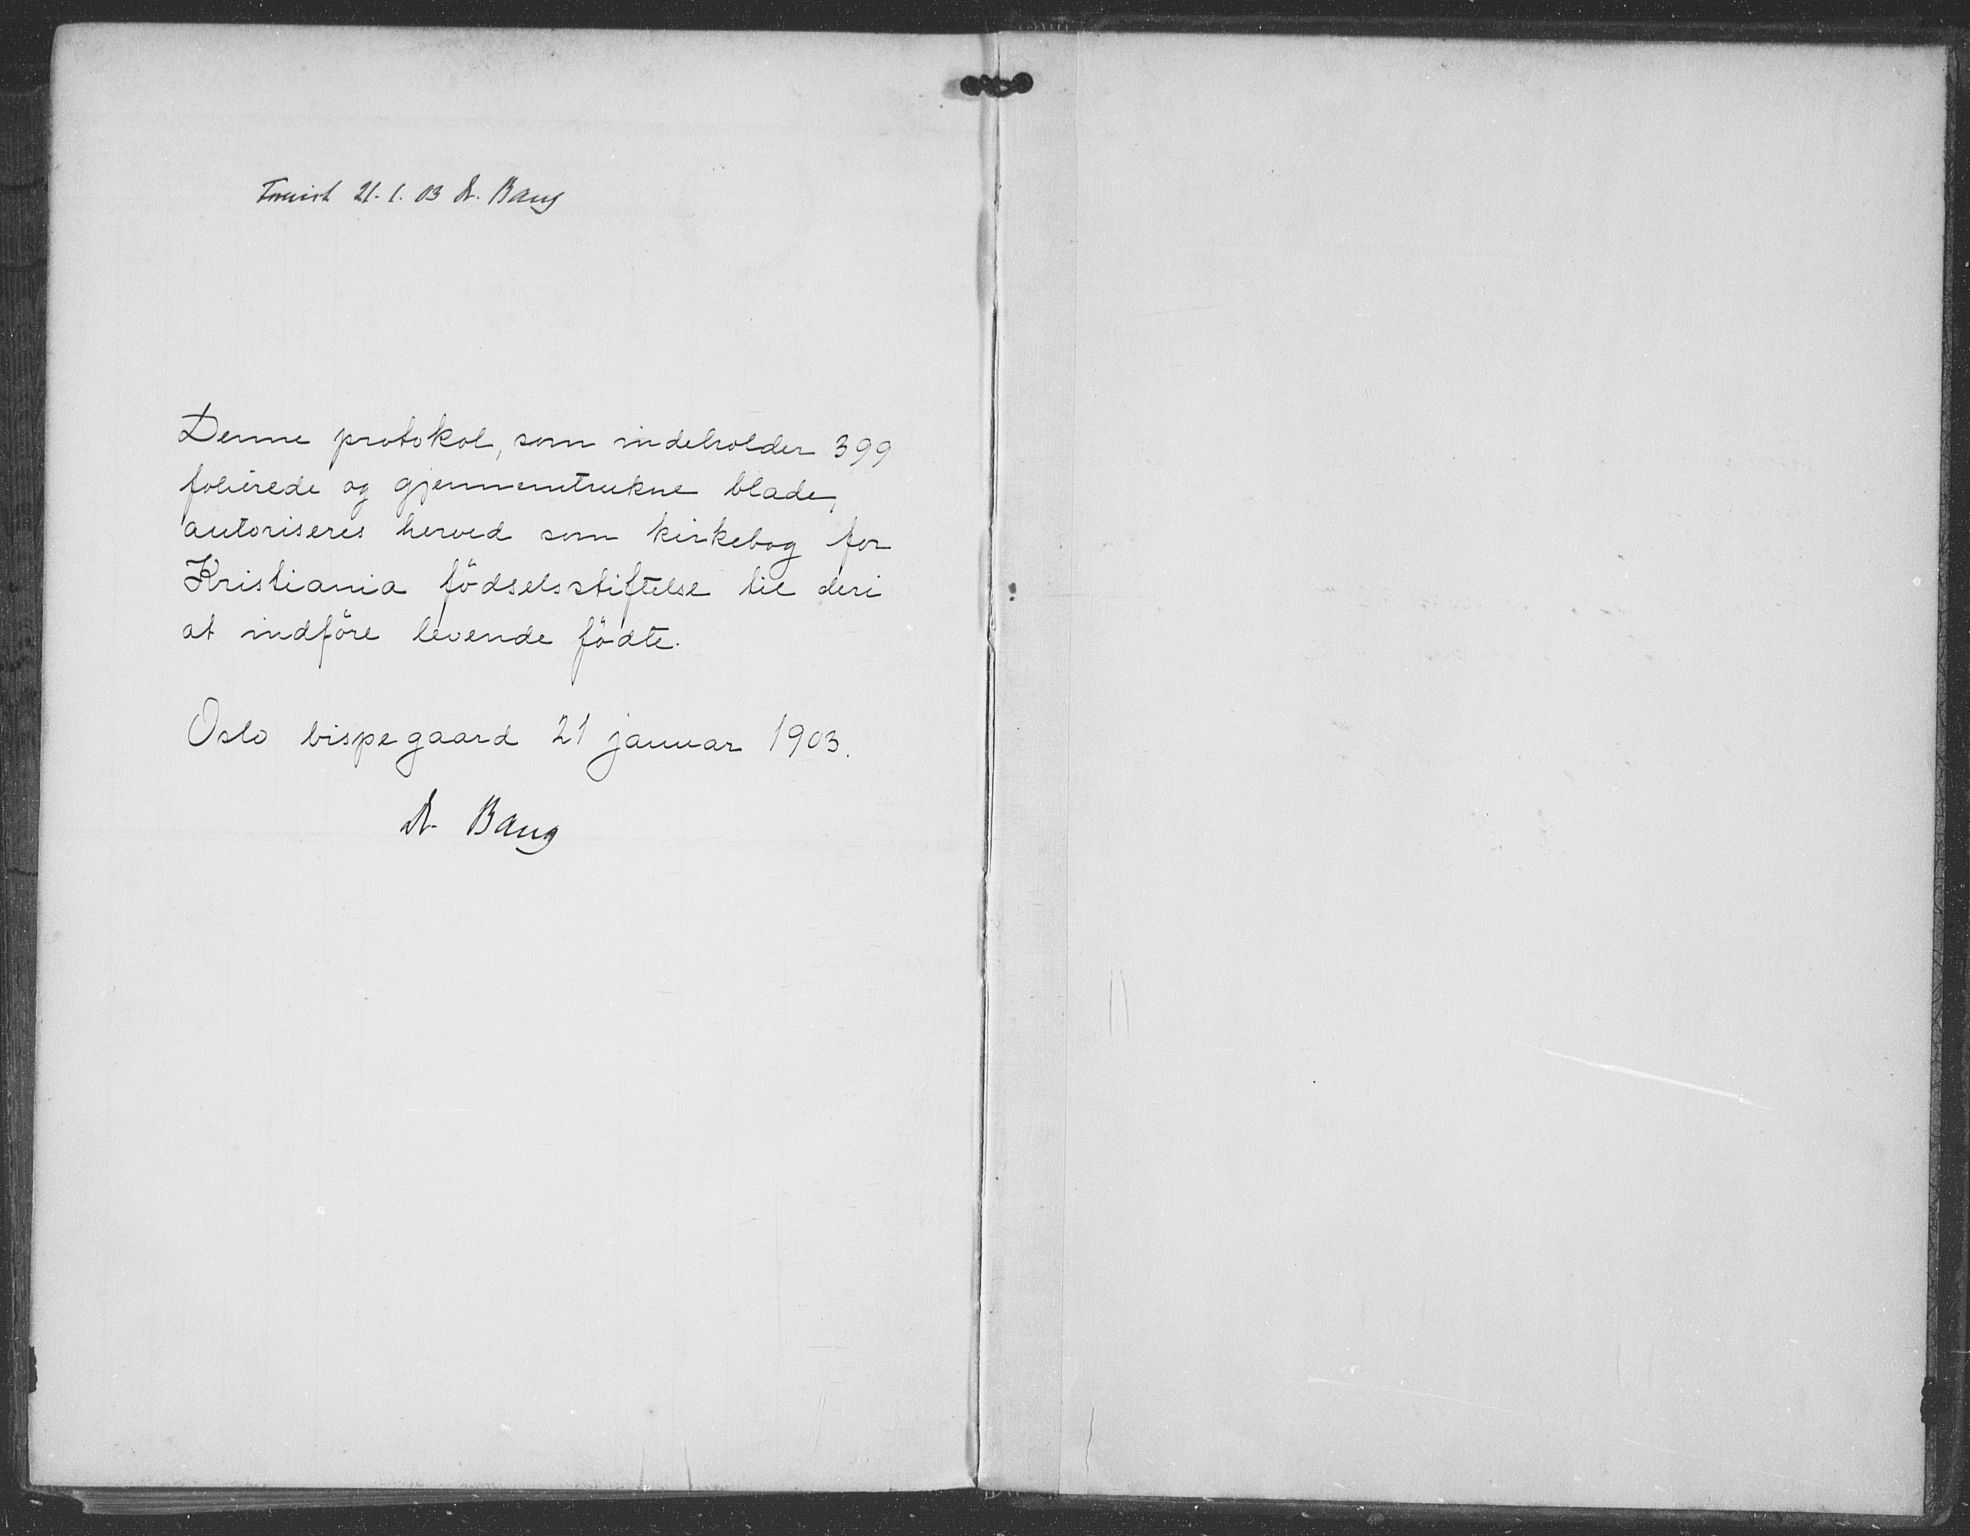 21. 1. 03 A. Bang
Denne protokol, som indeholder 399
folierede og gjennemtrukne blade,
autoriseres herved som kirkebog for
Kristiania födselsstiftelse til deri
at indföre levende födte.
Oslo bispegaard 21 januar 1903.
A. Bang